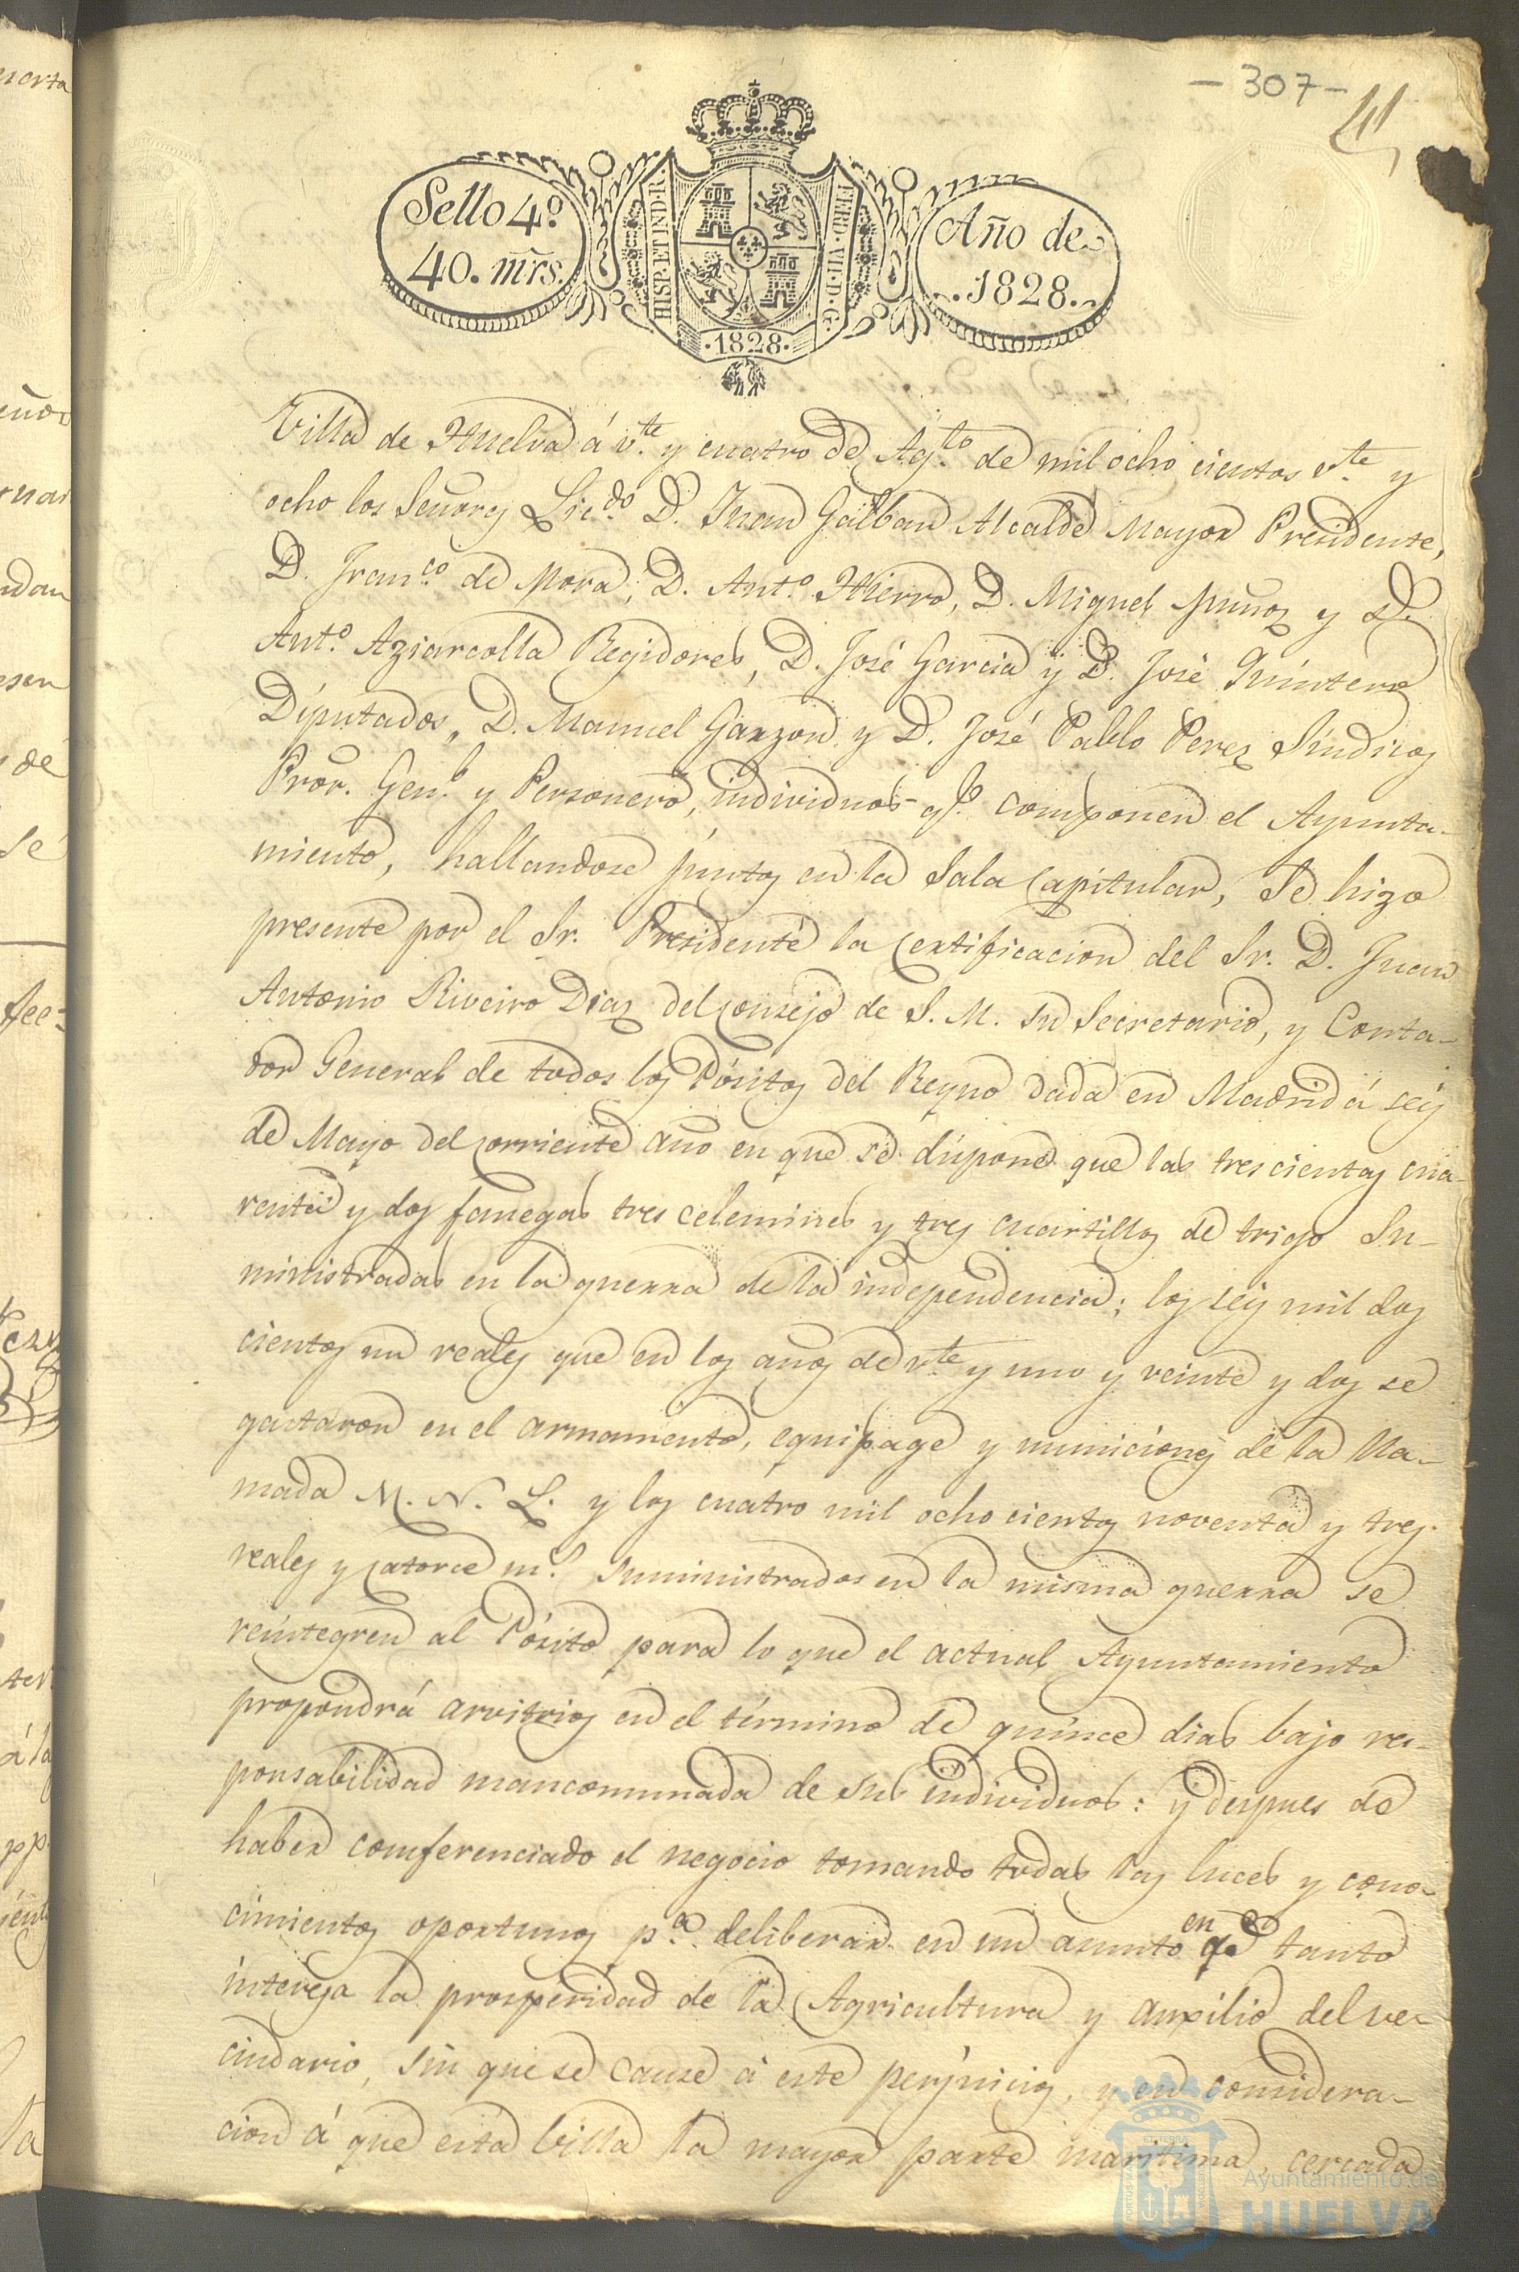 - 307 -
41
Sello 4º
40. mrs.
HISP. ET IND. R.
FERD. VII. D. G.
·1828·
Año de
.1828.
Villa de Huelva á v.te y cuatro de Ag.to de mil ocho cientos v.te y
ocho los Señores Lic.do D. Juan Galban Alcalde Mayor Presidente,
D. Fran.co de Mora, D. Ant.o Hierro, D. Miguel Muñoz y D.
Ant.o Aziarcolla Regidores, D. José Garcia y D. José Quintero
Diputados, D. Manuel Garzon y D. José Pablo Perez Síndicos
Pror. Gen.l y Personero, individuos q.e componen el Ayunta-
miento, hallandose juntos en la Sala Capitular, Se hizo
presente por el Sr. Presidente la Certificacion del Sr. D. Juan
Antonio Riveiro Diaz del Consejo de S. M. su Secretario, y Conta-
dor General de todos los Pósitos del Reyno dada en Madrid á seis
de Mayo del corriente año en que se dispone que las trescientas cua-
renta y dos fanegas tres celemines y tres cuartillos de trigo Su-
ministradas en la guerra de la independencia; los seis mil dos
cientos un reales que en los años de v.te y uno y veinte y dos se
gastaron en el armamento, equipage y municiones de la lla-
mada M. N. L. y los cuatro mil ocho cientos noventa y tres
reales y catorce m.s Suministrados en la misma guerra se
reintegren al Pósito para lo que el actual Ayuntamiento
propondrá arvitrios en el término de quince dias bajo res-
ponsabilidad mancomunada de sus individuos: y despues de
haber comferenciado el negocio tomando todas las luces y cono-
cimientos oportunos p.a deliberar en un asunto en q.e tanto
interesa la prosperidad de la Agricultura y auxilio del ve-
cindario, sin que se cause á este perjuicios, y en considera-
cion á que esta Villa la mayor parte maritima, cercada
Ayuntamiento de
HUELVA